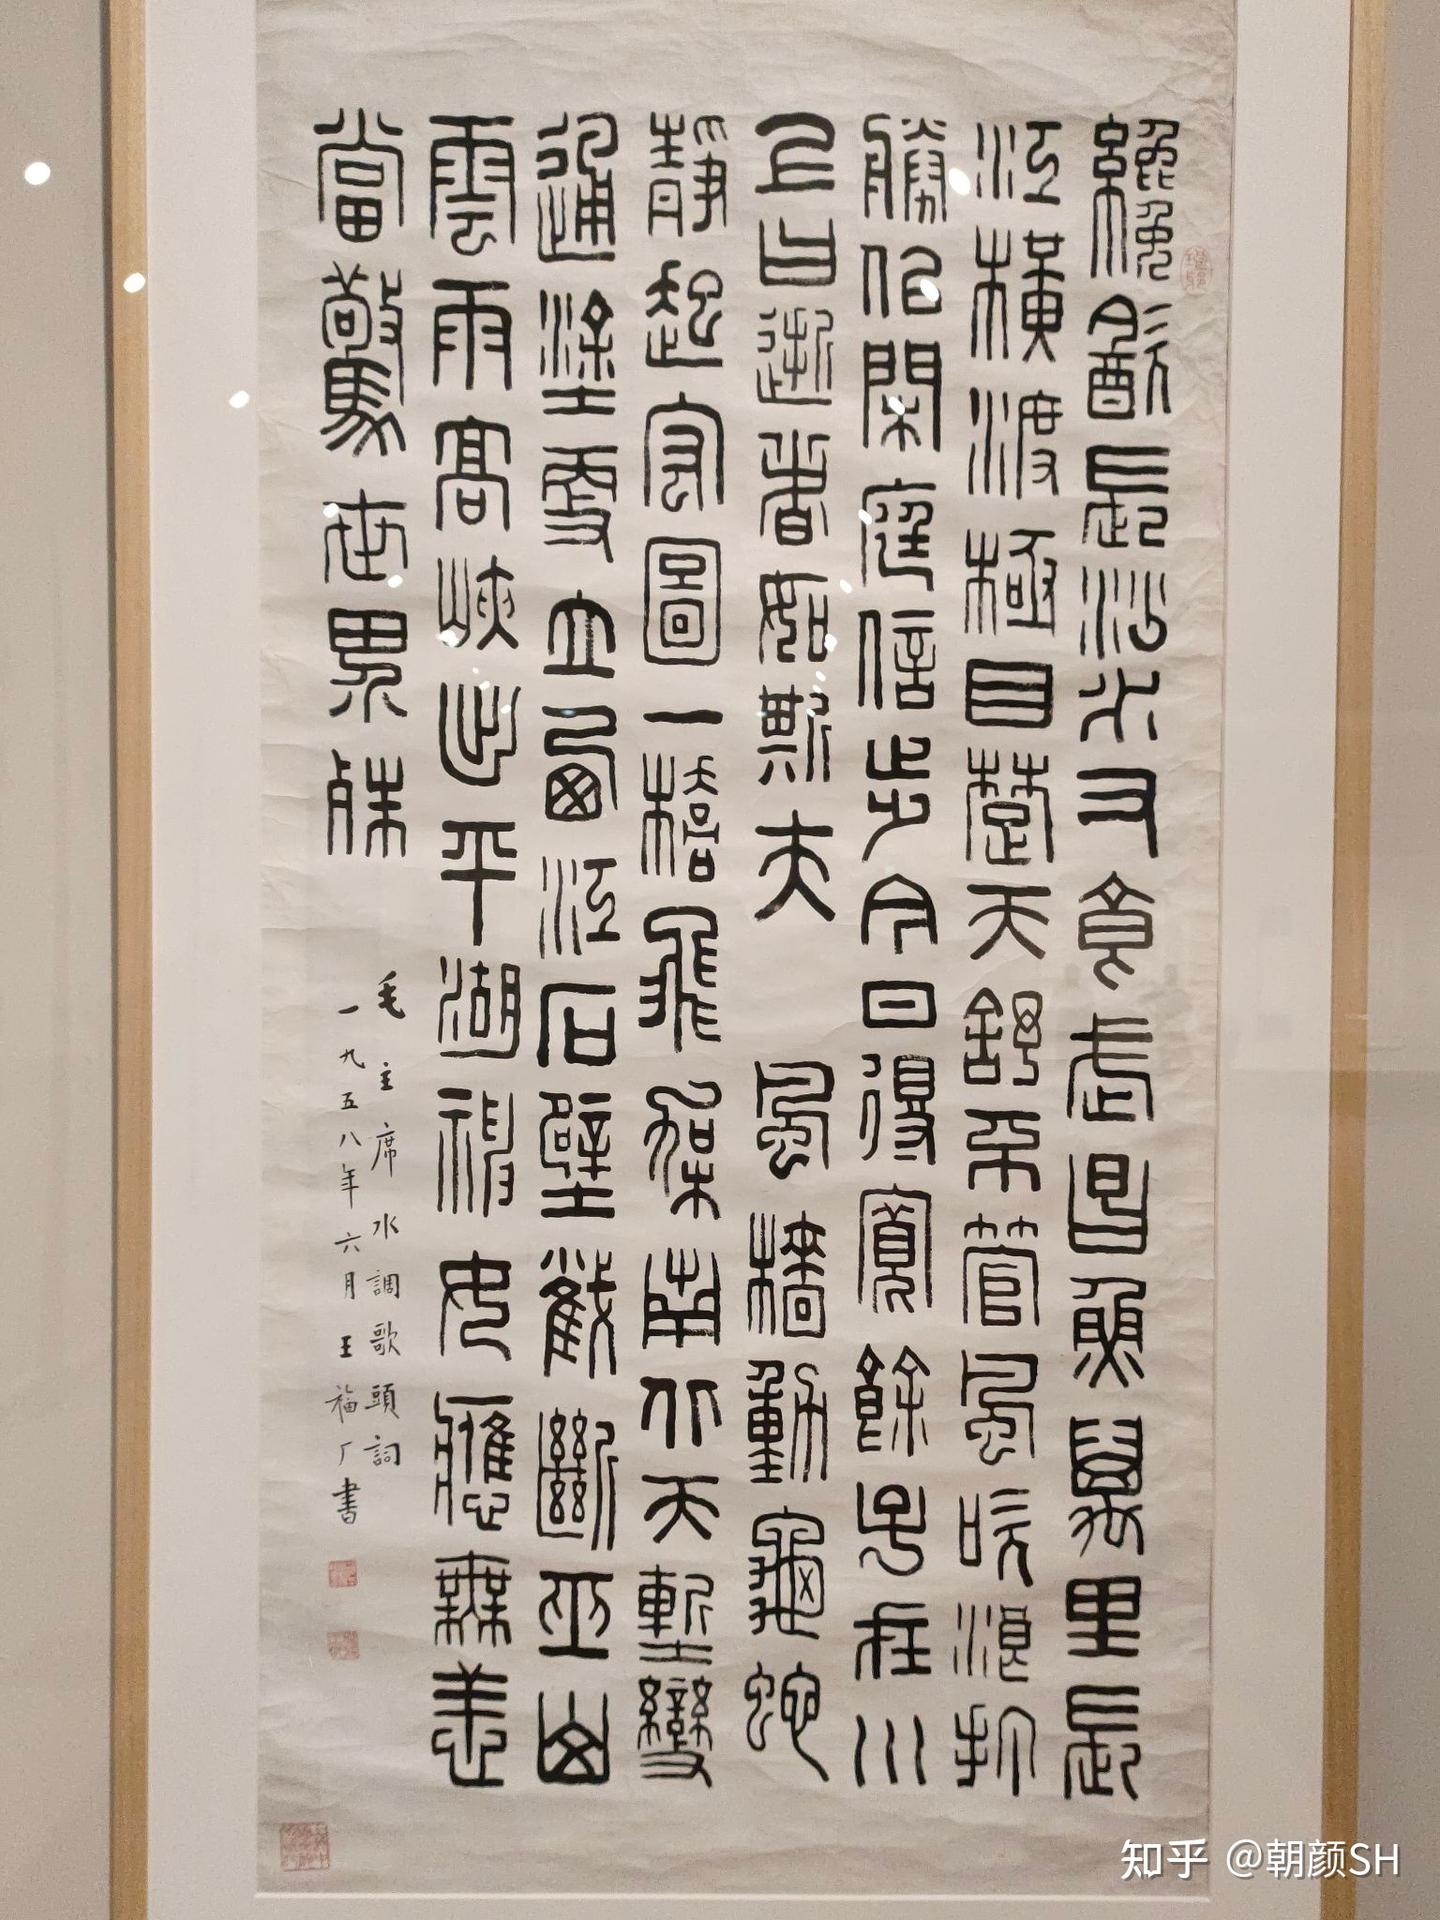 纔飲長沙水又食武昌魚萬里長
江橫渡極目楚天舒不管風吹浪打
勝佀閑庭信步今日得寬餘子在川
上曰逝者如斯夫 風檣動龜蛇
靜起宏圖一橋飛架南北天塹變
通塗更立西江石壁截斷巫山
雲雨高峽出平湖神女應無恙
當驚世界殊
毛主席水調歌頭詞
一九五八年六月王福厂書
知乎 @朝颜SH